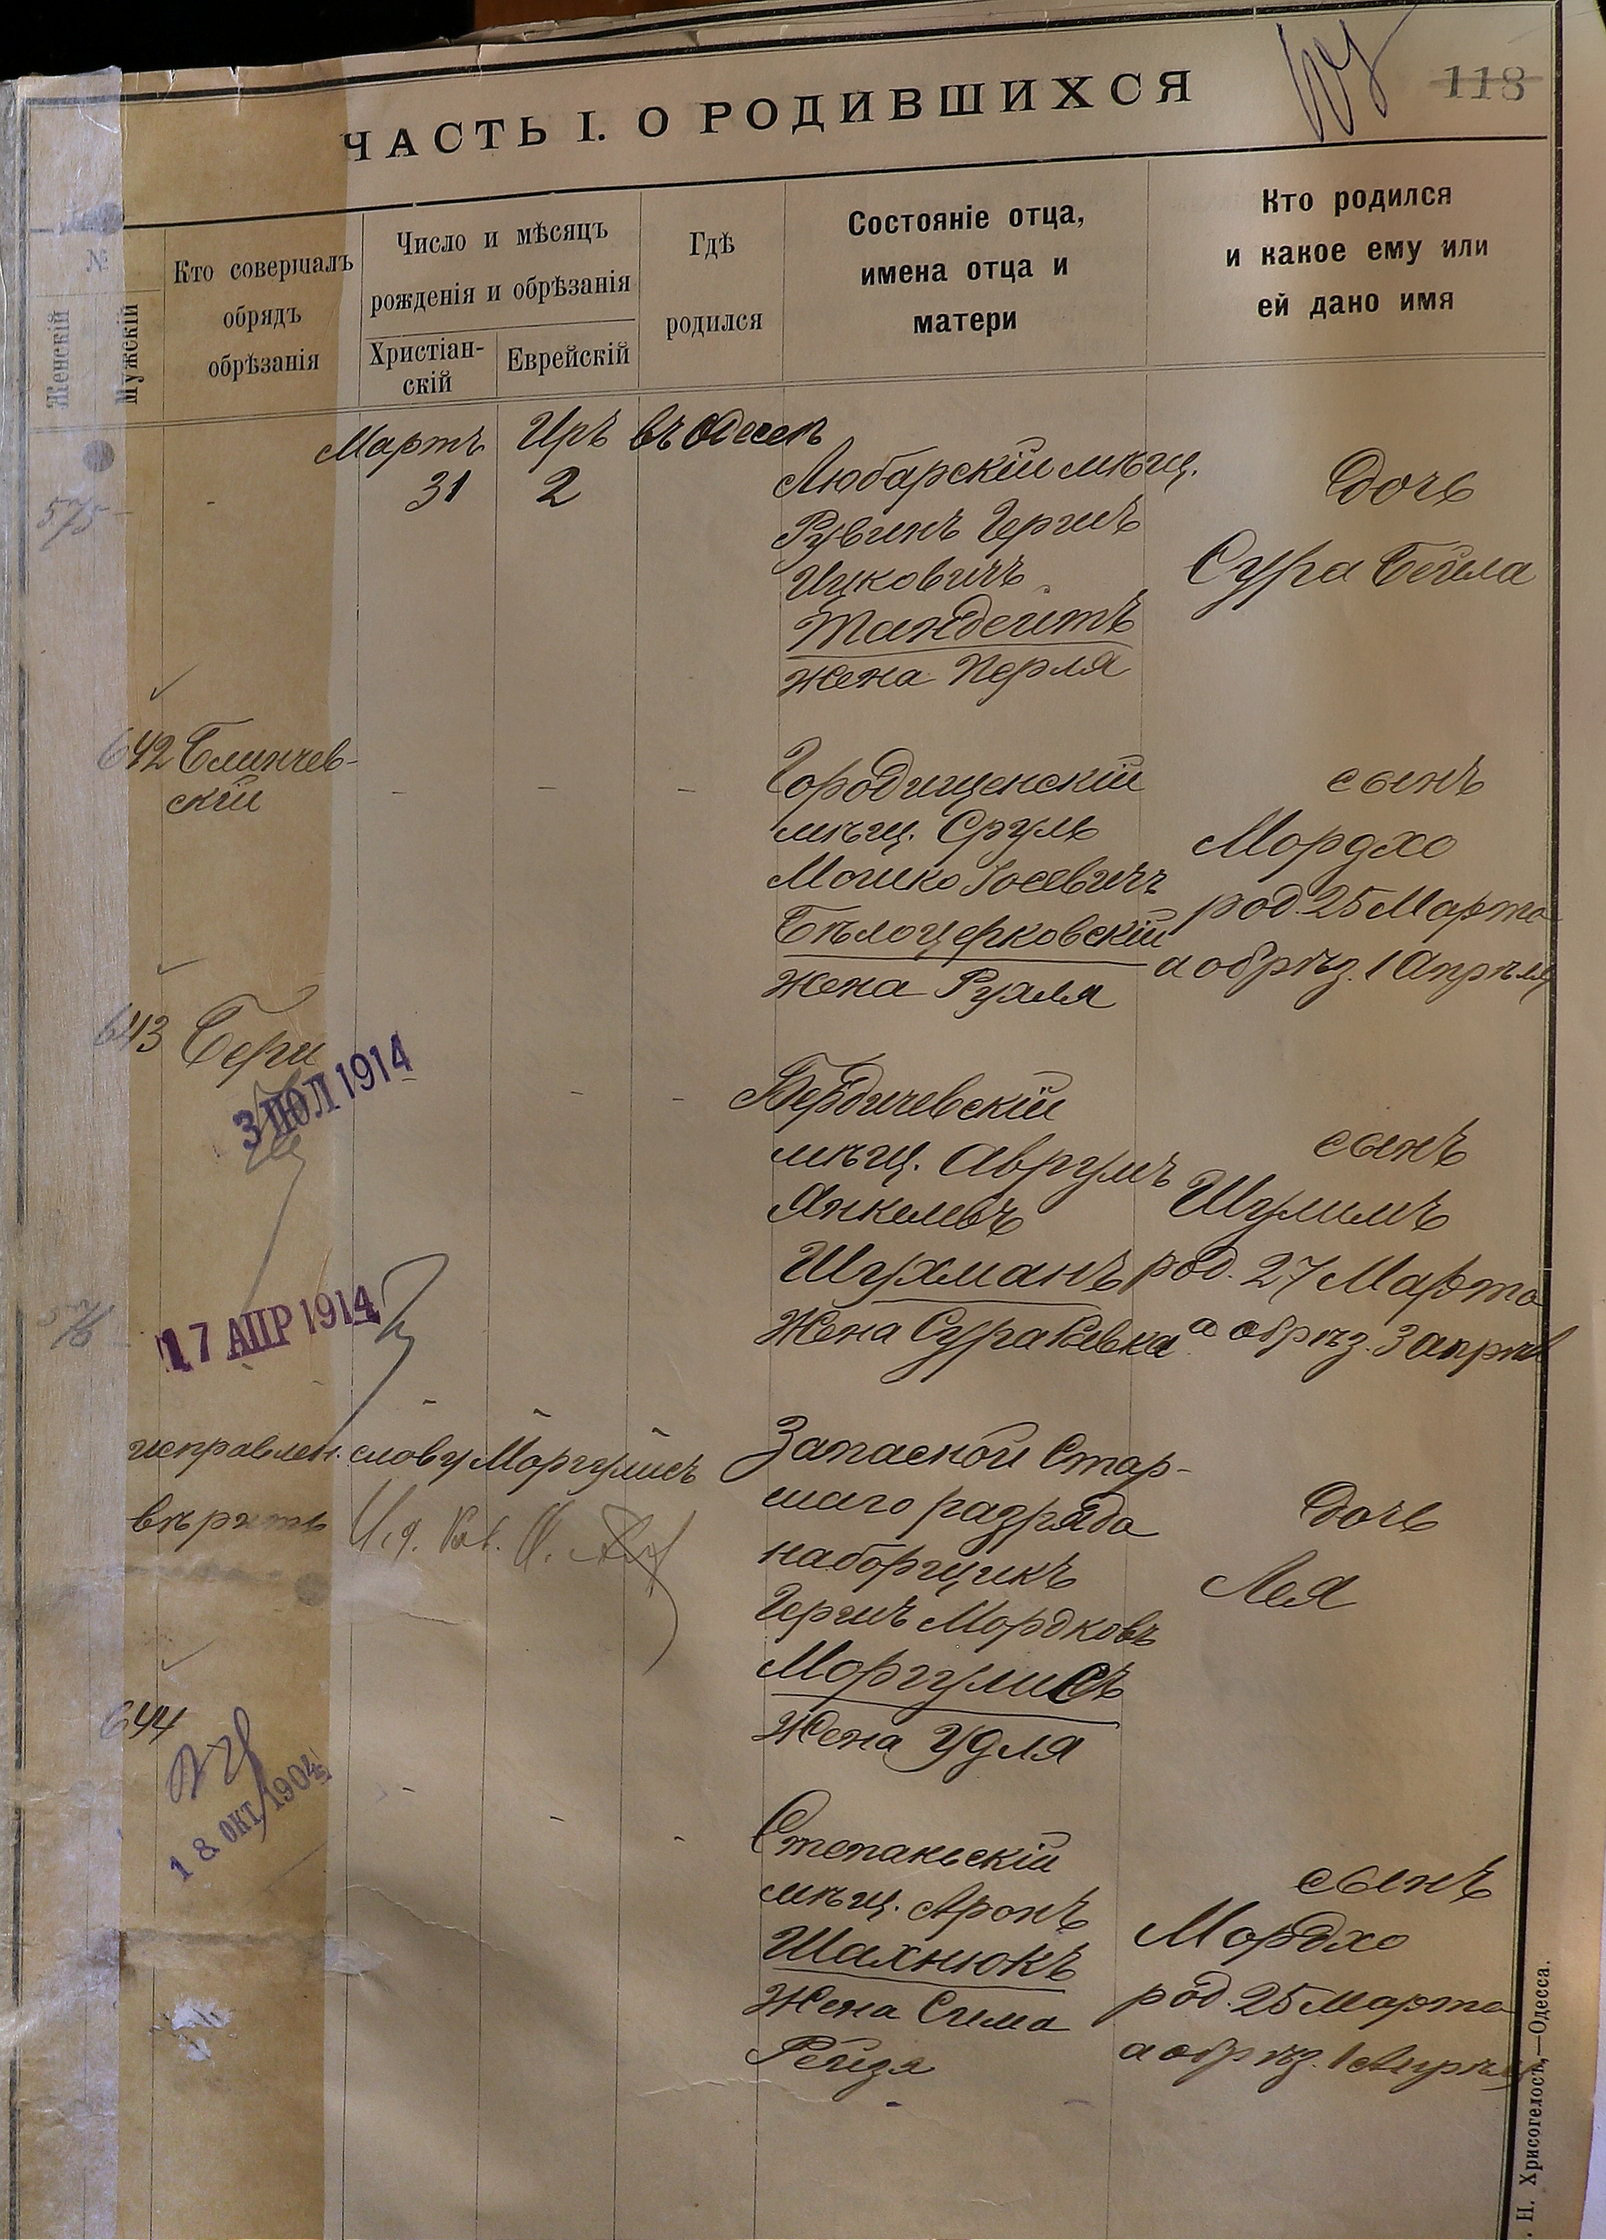 118
ЧАСТЬ I. О РОДИВШИХСЯ
№
Женскій
Мужскій
Кто совершалъ
обрядъ
обрѣзанія
Число и мѣсяцъ
рожденія и обрѣзанія
Христіан-
скій
Еврейскій
Гдѣ
родился
Состояніе отца,
имена отца и
матери
Кто родился
и какое ему или
ей дано имя
Мартъ Иръ въ Одессѣ
575 - 31 2
Любарскій мѣщ.
Рувинъ Гершъ
Ицковичъ
Тандейтъ
жена Перля
Дочь
Сура Бейла
642 Блинчев-
скій
Городищенскій
мѣщ. Сруль
Мошко Іосевичъ
Бѣлоцерковскій
жена Рухля
сынъ
Мордхо
род. 25 Марта
а обрѣз. 1 Апрѣля
643
3 ІЮЛ 1914
Бердичевскій
мѣщ. Аврумъ
Янкелевъ
Шухманъ
Жена Сура Ривка
сынъ
Шулимъ
род. 27 Марта
а обрѣз. 3 апрѣл
576
17 АПР 1914
исправлен. слову Моргулисъ
вѣрить
Запасной Стар-
шаго разряда
наборщикъ
Гершъ Мордковъ
Моргулисъ
Жена Удля
Дочь
Лея
644
18 ОКТ 1904
Степаньскій
мѣщ. Аронъ
Шахнюкъ
Жена Сима
Рейзя
сынъ
Мордхо
род. 25 Марта
а обрѣз. 1 Апрѣля
Н. Хрисогелосъ,—Одесса.